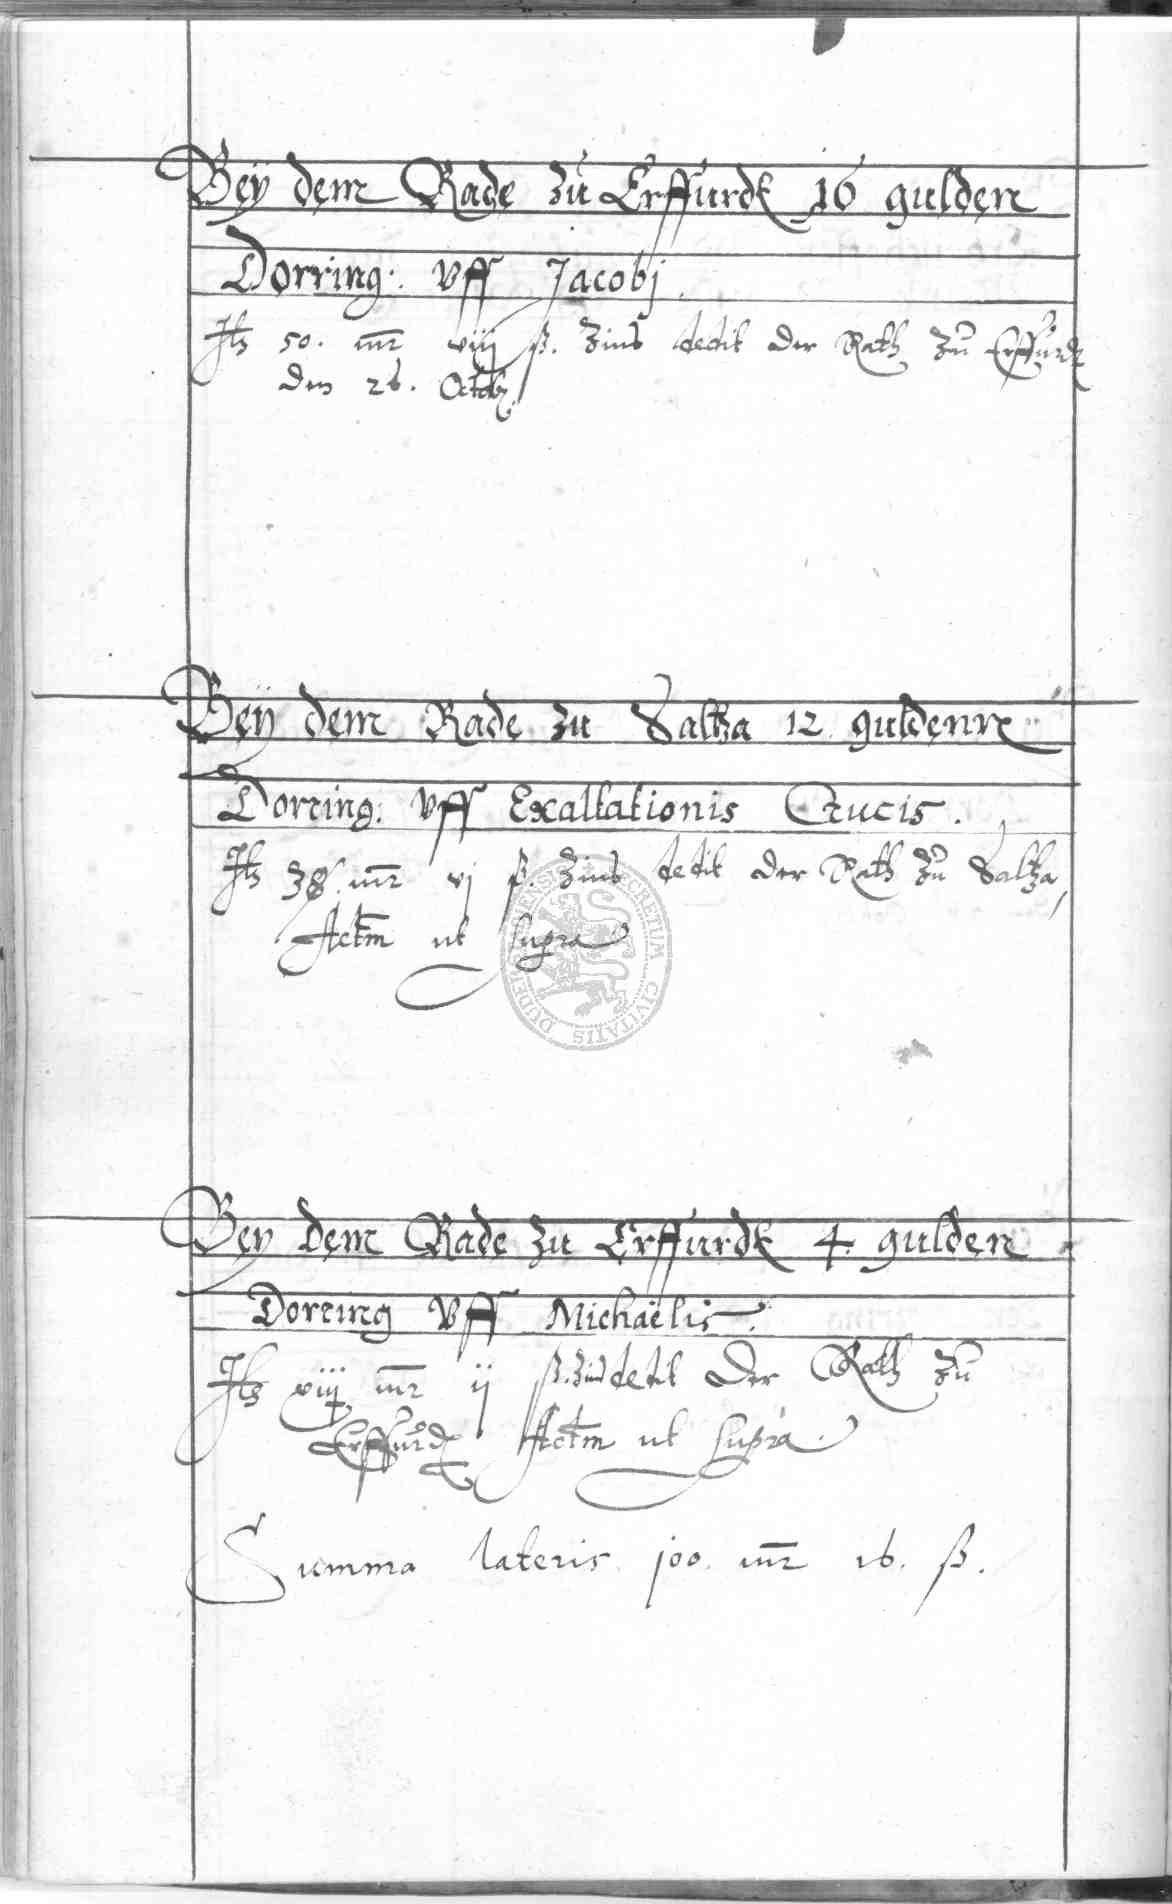 Beÿ dem Rade zu Erffurdt 16 gulden
Dorring: vff Jacobj.
Itz 50. mr viij ß. Zins dedit der Rath zu Erffurdt
den 26. Octobr
Beÿ dem Rade zu Saltza 12 guldenn
Dorring: vff Exaltationis Crucis.
Itz 38. mr vj ß. Zins dedit der Rath zu Saltza,
Actm ut supra
Bey dem Rade zu Erffurdt 4. gulden
Dorring vff Michaëlis.
Itz mr ij ß. Zins dedit der Rath zu
Erffurdt Actm ut supra.
Summa lateris j00. mr 16. ß.
SECRETUM CIVITATIS